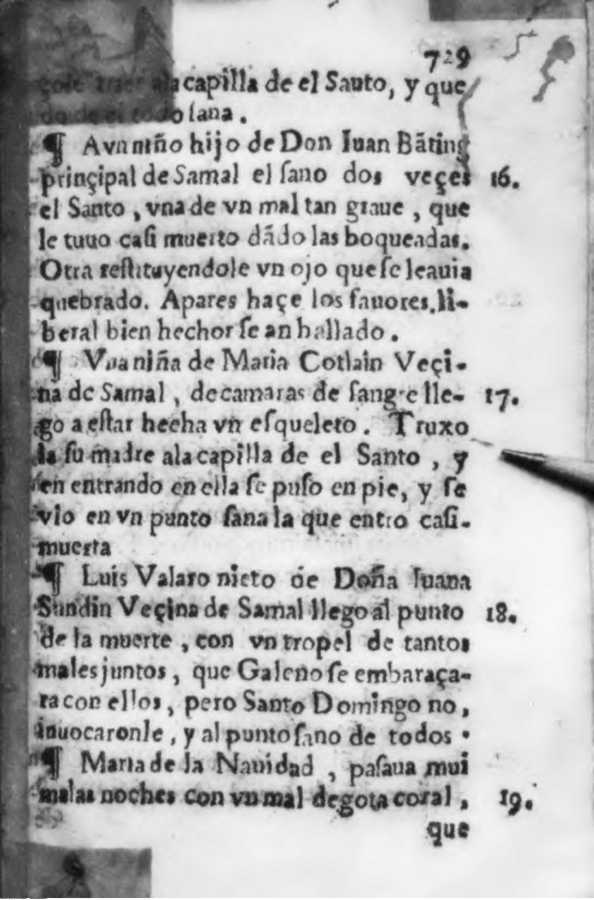 729
ala capilla de el Santo, y que
do de el todo sana.
¶ A vn niño hijo de Don Iuan Bãting
prinçipal de Samal el sano dos veçes 16.
el Santo, vna de vn mal tan graue, que
le tuuo casi muerto dãdo las boqueadas.
Otra restituyendole vn ojo que se leauia
quebrado. Apares haçe los fauores, li-
beral bien hechor se an hallado.
¶ Vna niña de Maria Cotlain Veçi-
na de Samal, de camaras de sangre lle- 17.
go a estar hecha vn esqueleto. Truxo
la su madre ala capilla de el Santo, y
en entrando en ella se puso en pie, y se
vio en vn punto sana la que entro casi-
muerta
¶ Luis Valaro nieto de Doña Iuana
Sundin Veçina de Samal llego al punto 18.
de la muerte, con vn tropel de tantos
males juntos, que Galeno se embaraça-
ra con ellos, pero Santo Domingo no,
inuocaronle, y al punto sano de todos.
¶ Maria de la Nauidad, pasaua mui
malas noches con vn mal de gota coral, 19.
que